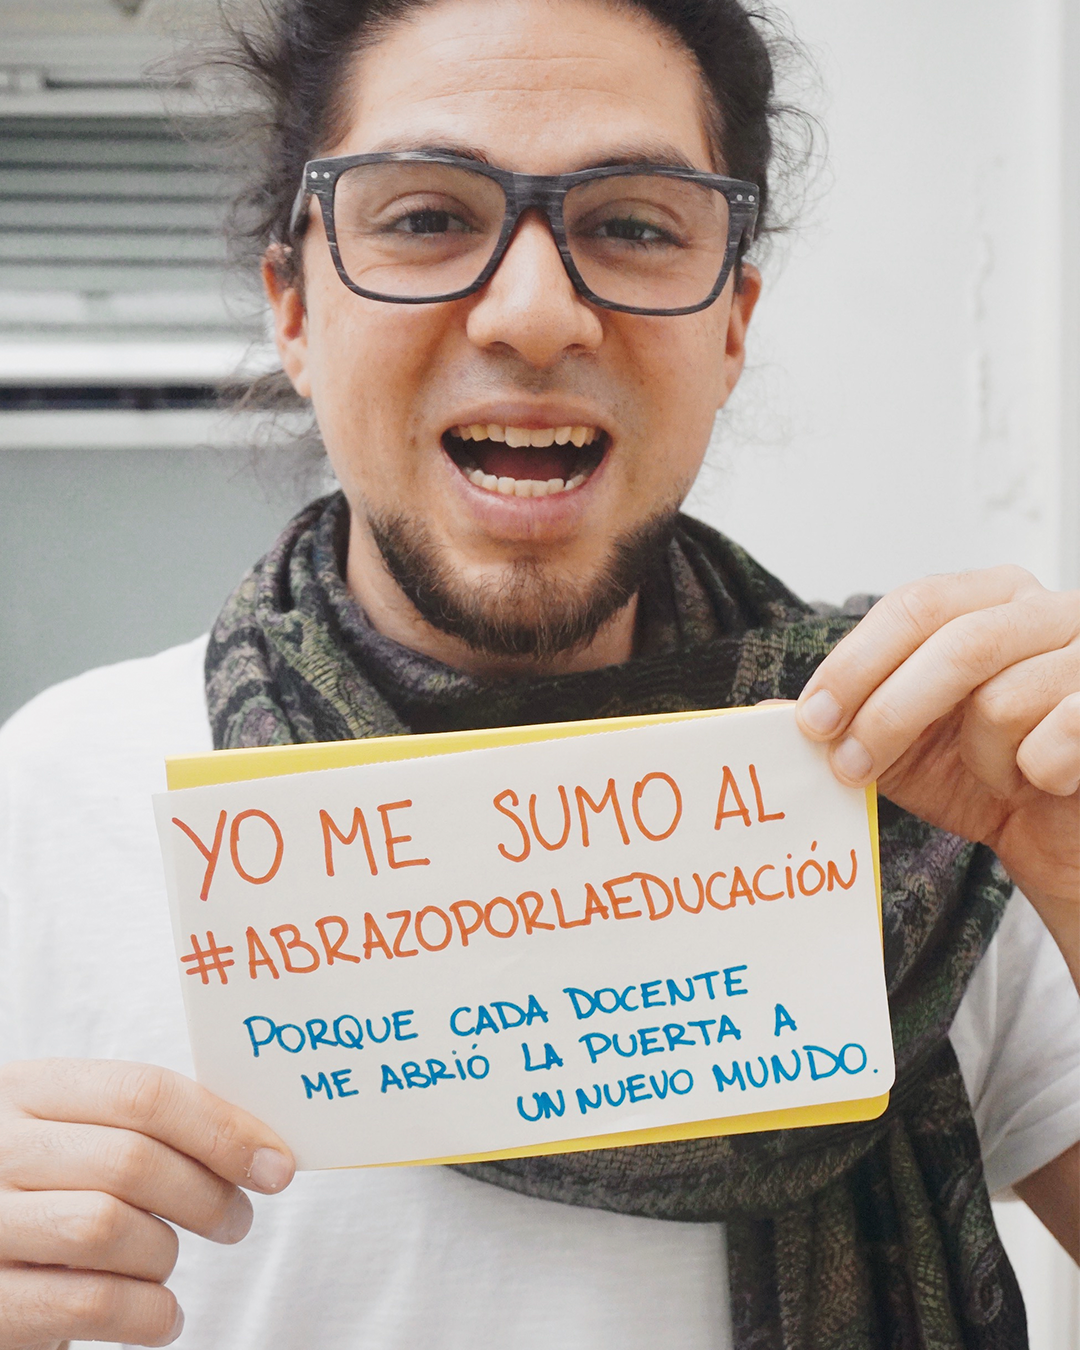 YO ME SUMO AL
#ABRAZOPORLAEDUCACIÓN
PORQUE CADA DOCENTE
ME ABRIÓ LA PUERTA A
UN NUEVO MUNDO.